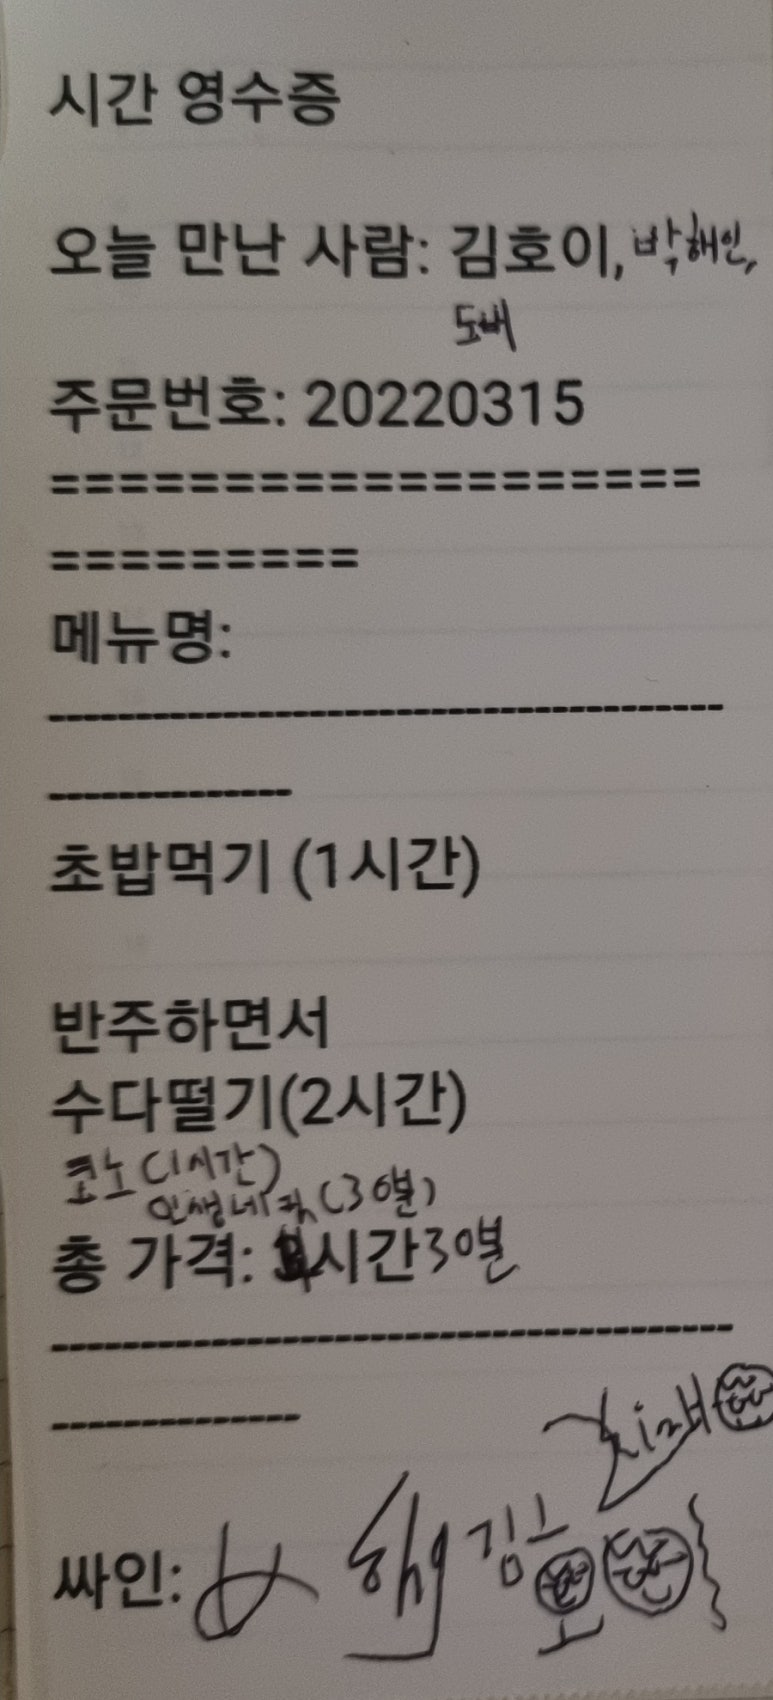 시간 영수증
오늘 만난 사람: 김호이, 박해인,
도배
주문번호: 20220315
===================
=========
메뉴명:
---------------------------------------
--------------
초밥먹기 (1시간)
반주하면서
수다떨기(2시간)
코노 (1시간)
인생네컷 (30분)
총 가격: 4시간30분
---------------------------------------
--------------
싸인: